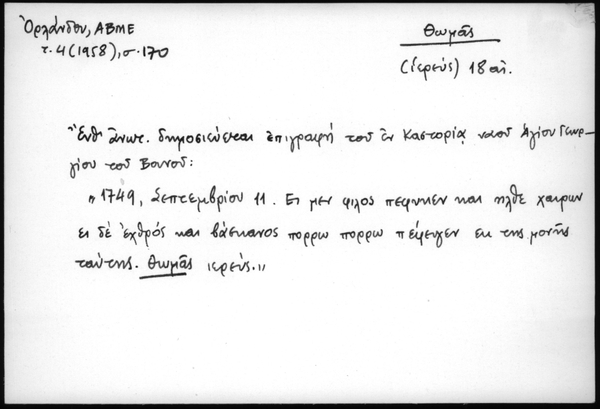 Ὀρλάνδου, ΑΒΜΕ
τ. 4 (1958), σ. 170
Θωμᾶς
(ἱερεύς) 18 αἰ.
Ἔνθ' ἄνωτ. δημοσιεύεται ἐπιγραφή τοῦ ἐν Καστορίᾳ ναοῦ Ἁγίου Γεωρ-
γίου τοῦ Βουνοῦ:
"1749, Σεπτεμβρίου 11. Ει μεν φιλος πεφυκεν και ηλθε χαιρων
ει δέ ἐχθρός και βάσκανος πορρω πορρω πέφευγεν εκ της μονῆς
ταύτης. Θωμᾶς ιερεύς."